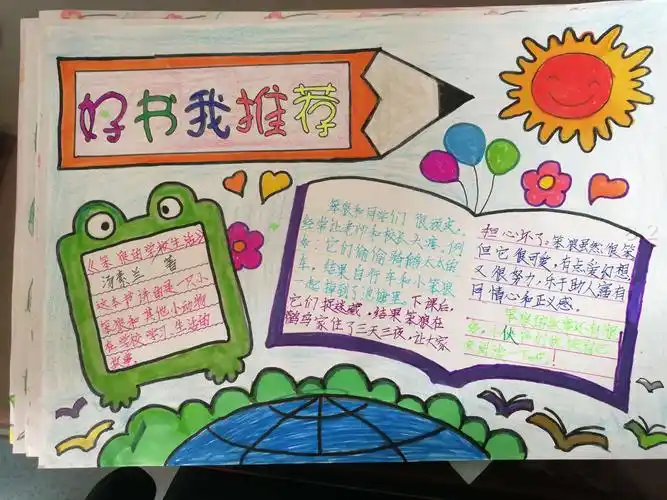 好书我推荐
《笨狼的学校生活》
汤素兰 著
这本书讲的是一只小
笨狼和其他小动物
在学校学习生活的
故事。
笨狼和同学们很顽皮，
经常让老师和校长头疼。例
如：它们偷偷骑鹅太太的
车，结果自行车和小笨狼
一起掉到了池塘里。下课后，
它们捉迷藏，结果笨狼在
鹳鸟家住了三天三夜，让大家
担心坏了。笨狼虽然很笨
但它很可爱，有点爱幻想
又很努力，乐于助人富有
同情心和正义感。